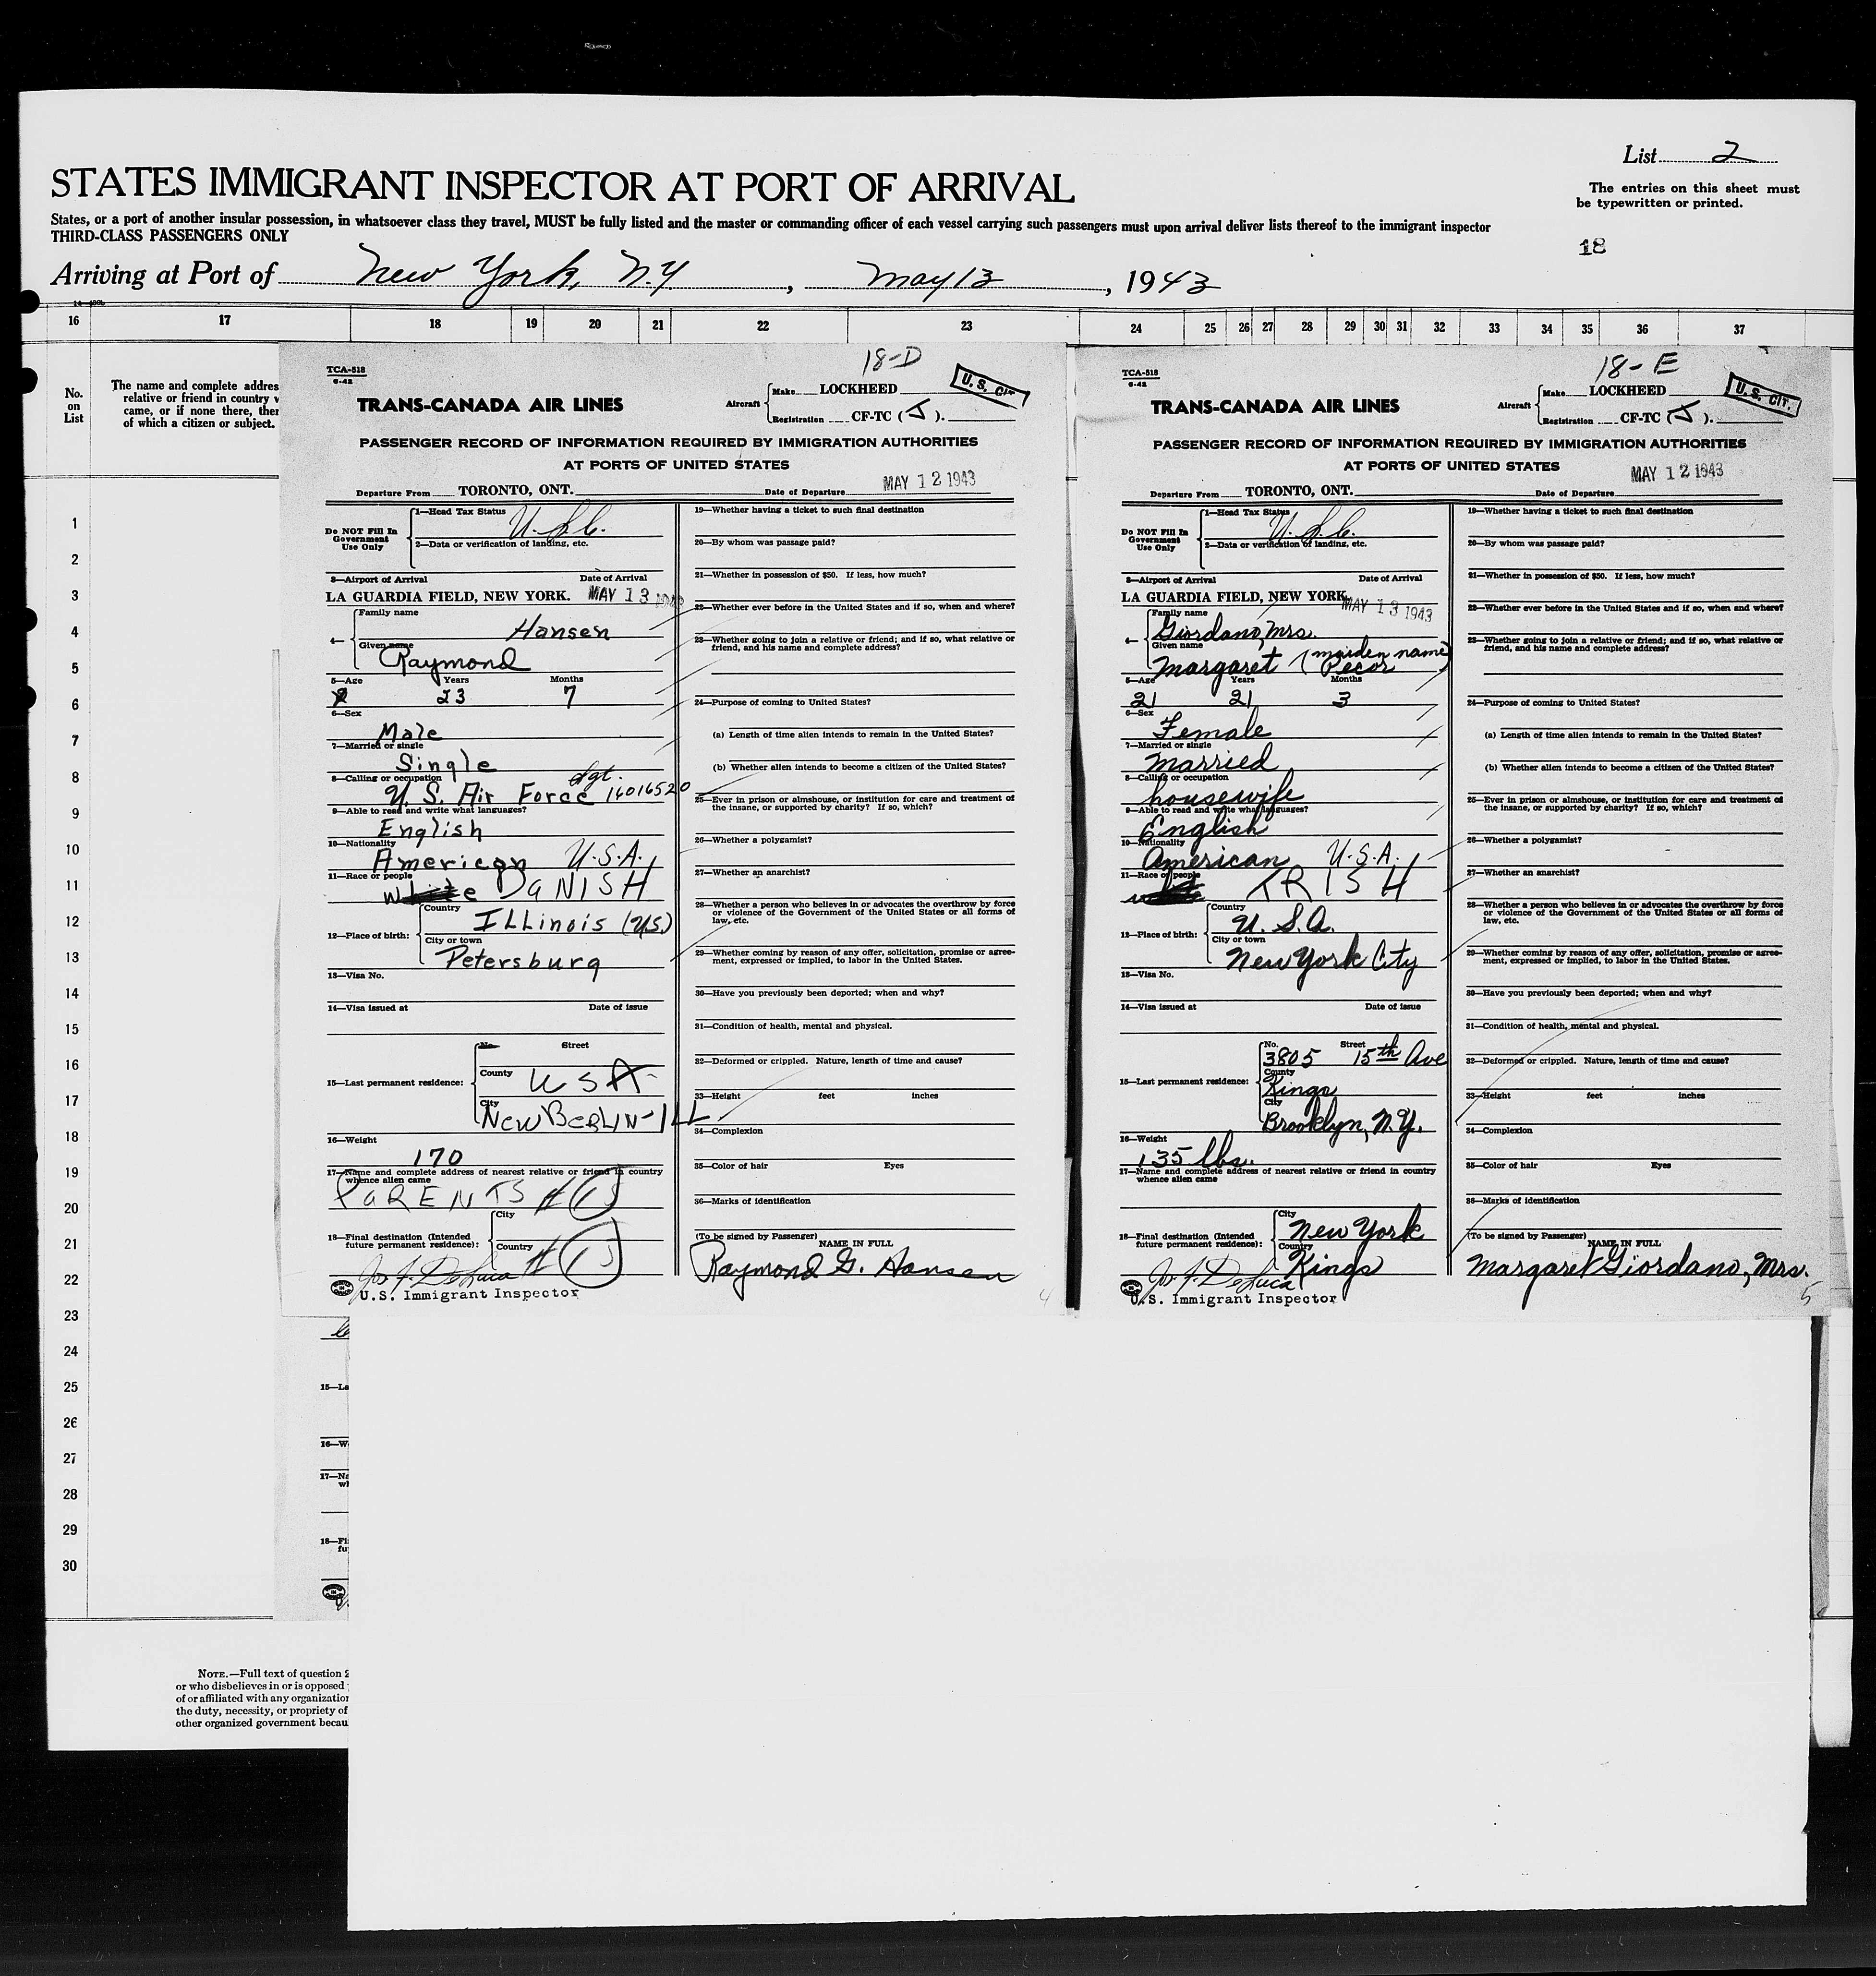 List 2
STATES IMMIGRANT INSPECTOR AT PORT OF ARRIVAL
The entries on this sheet must
be typewritten or printed.
States, or a port of another insular possession, in whatsoever class they travel, MUST be fully listed and the master or commanding officer of each vessel carrying such passengers must upon arrival deliver lists thereof to the immigrant inspector
THIRD-CLASS PASSENGERS ONLY
18
Arriving at Port of New York, N.Y, May 13, 1943
16 17 18 19 20 21 22 23 24 25 26 27 28 29 30 31 32 33 34 35 36 37
No.
on
List
The name and complete addres
relative or friend in country w
came, or if none there, ther
of which a citizen or subject.
1
2
3
4
5
6
7
8
9
10
11
12
13
14
15
16
17
18
19
20
21
22
23
24
25
26
27
28
29
30
TCA-518
6-42
18-D
U.S. CIT.
TRANS-CANADA AIR LINES
Aircraft
Make LOCKHEED
Registration CF-TC (J).
PASSENGER RECORD OF INFORMATION REQUIRED BY IMMIGRATION AUTHORITIES
AT PORTS OF UNITED STATES
Departure From TORONTO, ONT.
Date of Departure MAY 12 1943
Do NOT Fill In
Government
Use Only
1—Head Tax Status
U.S.C.
2—Data or verification of landing, etc.
3—Airport of Arrival Date of Arrival
LA GUARDIA FIELD, NEW YORK. MAY 13 1943
4—
Family name
Hansen
Given name
Raymond
5—Age Years Months
23 7
6—Sex
Male
7—Married or single
Single
8—Calling or occupation
Sgt.
U.S. Air Force 16016520
9—Able to read and write what languages?
English
10—Nationality
American U.S.A.
11—Race or people
white DANISH
12—Place of birth:
Country
ILLinois (U.S.)
City or town
Petersburg
13—Visa No.
14—Visa issued at Date of issue
15—Last permanent residence:
No. Street
County
USA
City
NEW BERLIN-ILL
16—Weight
170
17—Name and complete address of nearest relative or friend in country
whence alien came
PARENTS # 15
18—Final destination (Intended
future permanent residence):
City
Country
# 15
Jos. J. DeLuca
U.S. Immigrant Inspector
19—Whether having a ticket to such final destination
20—By whom was passage paid?
21—Whether in possession of $50. If less, how much?
22—Whether ever before in the United States and if so, when and where?
23—Whether going to join a relative or friend; and if so, what relative or
friend, and his name and complete address?
24—Purpose of coming to United States?
(a) Length of time alien intends to remain in the United States?
(b) Whether alien intends to become a citizen of the United States?
25—Ever in prison or almshouse, or institution for care and treatment of
the insane, or supported by charity? If so, which?
26—Whether a polygamist?
27—Whether an anarchist?
28—Whether a person who believes in or advocates the overthrow by force
or violence of the Government of the United States or all forms of
law, etc.
29—Whether coming by reason of any offer, solicitation, promise or agree-
ment, expressed or implied, to labor in the United States.
30—Have you previously been deported; when and why?
31—Condition of health, mental and physical.
32—Deformed or crippled. Nature, length of time and cause?
33—Height feet inches
34—Complexion
35—Color of hair Eyes
36—Marks of identification
(To be signed by Passenger)
NAME IN FULL
Raymond G. Hansen
4
TCA-518
6-42
18-E
U.S. CIT.
TRANS-CANADA AIR LINES
Aircraft
Make LOCKHEED
Registration CF-TC (J).
PASSENGER RECORD OF INFORMATION REQUIRED BY IMMIGRATION AUTHORITIES
AT PORTS OF UNITED STATES
Departure From TORONTO, ONT.
Date of Departure MAY 12 1943
Do NOT Fill In
Government
Use Only
1—Head Tax Status
U.S.C.
2—Data or verification of landing, etc.
3—Airport of Arrival Date of Arrival
LA GUARDIA FIELD, NEW YORK. MAY 13 1943
4—
Family name
Giordano, Mrs.
Given name
Margaret (maiden name Pecor)
5—Age Years Months
21 21 3
6—Sex
Female
7—Married or single
Married
8—Calling or occupation
housewife
9—Able to read and write what languages?
English
10—Nationality
American U.S.A.
11—Race or people
IRISH
12—Place of birth:
Country
U.S.A.
City or town
New York City
13—Visa No.
14—Visa issued at Date of issue
15—Last permanent residence:
No. Street
3805 15th Ave
County
Kings
City
Brooklyn, N.Y.
16—Weight
135 lbs.
17—Name and complete address of nearest relative or friend in country
whence alien came
18—Final destination (Intended
future permanent residence):
City
New York
Country
Kings
Jos. J. DeLuca
U.S. Immigrant Inspector
19—Whether having a ticket to such final destination
20—By whom was passage paid?
21—Whether in possession of $50. If less, how much?
22—Whether ever before in the United States and if so, when and where?
23—Whether going to join a relative or friend; and if so, what relative or
friend, and his name and complete address?
24—Purpose of coming to United States?
(a) Length of time alien intends to remain in the United States?
(b) Whether alien intends to become a citizen of the United States?
25—Ever in prison or almshouse, or institution for care and treatment of
the insane, or supported by charity? If so, which?
26—Whether a polygamist?
27—Whether an anarchist?
28—Whether a person who believes in or advocates the overthrow by force
or violence of the Government of the United States or all forms of
law, etc.
29—Whether coming by reason of any offer, solicitation, promise or agree-
ment, expressed or implied, to labor in the United States.
30—Have you previously been deported; when and why?
31—Condition of health, mental and physical.
32—Deformed or crippled. Nature, length of time and cause?
33—Height feet inches
34—Complexion
35—Color of hair Eyes
36—Marks of identification
(To be signed by Passenger)
NAME IN FULL
Margaret Giordano, Mrs.
5
15—La
16—W
17—Na
wh
18—Fi
fu
NOTE.—Full text of question 2
or who disbelieves in or is opposed
of or affiliated with any organization
the duty, necessity, or propriety of
other organized government becau